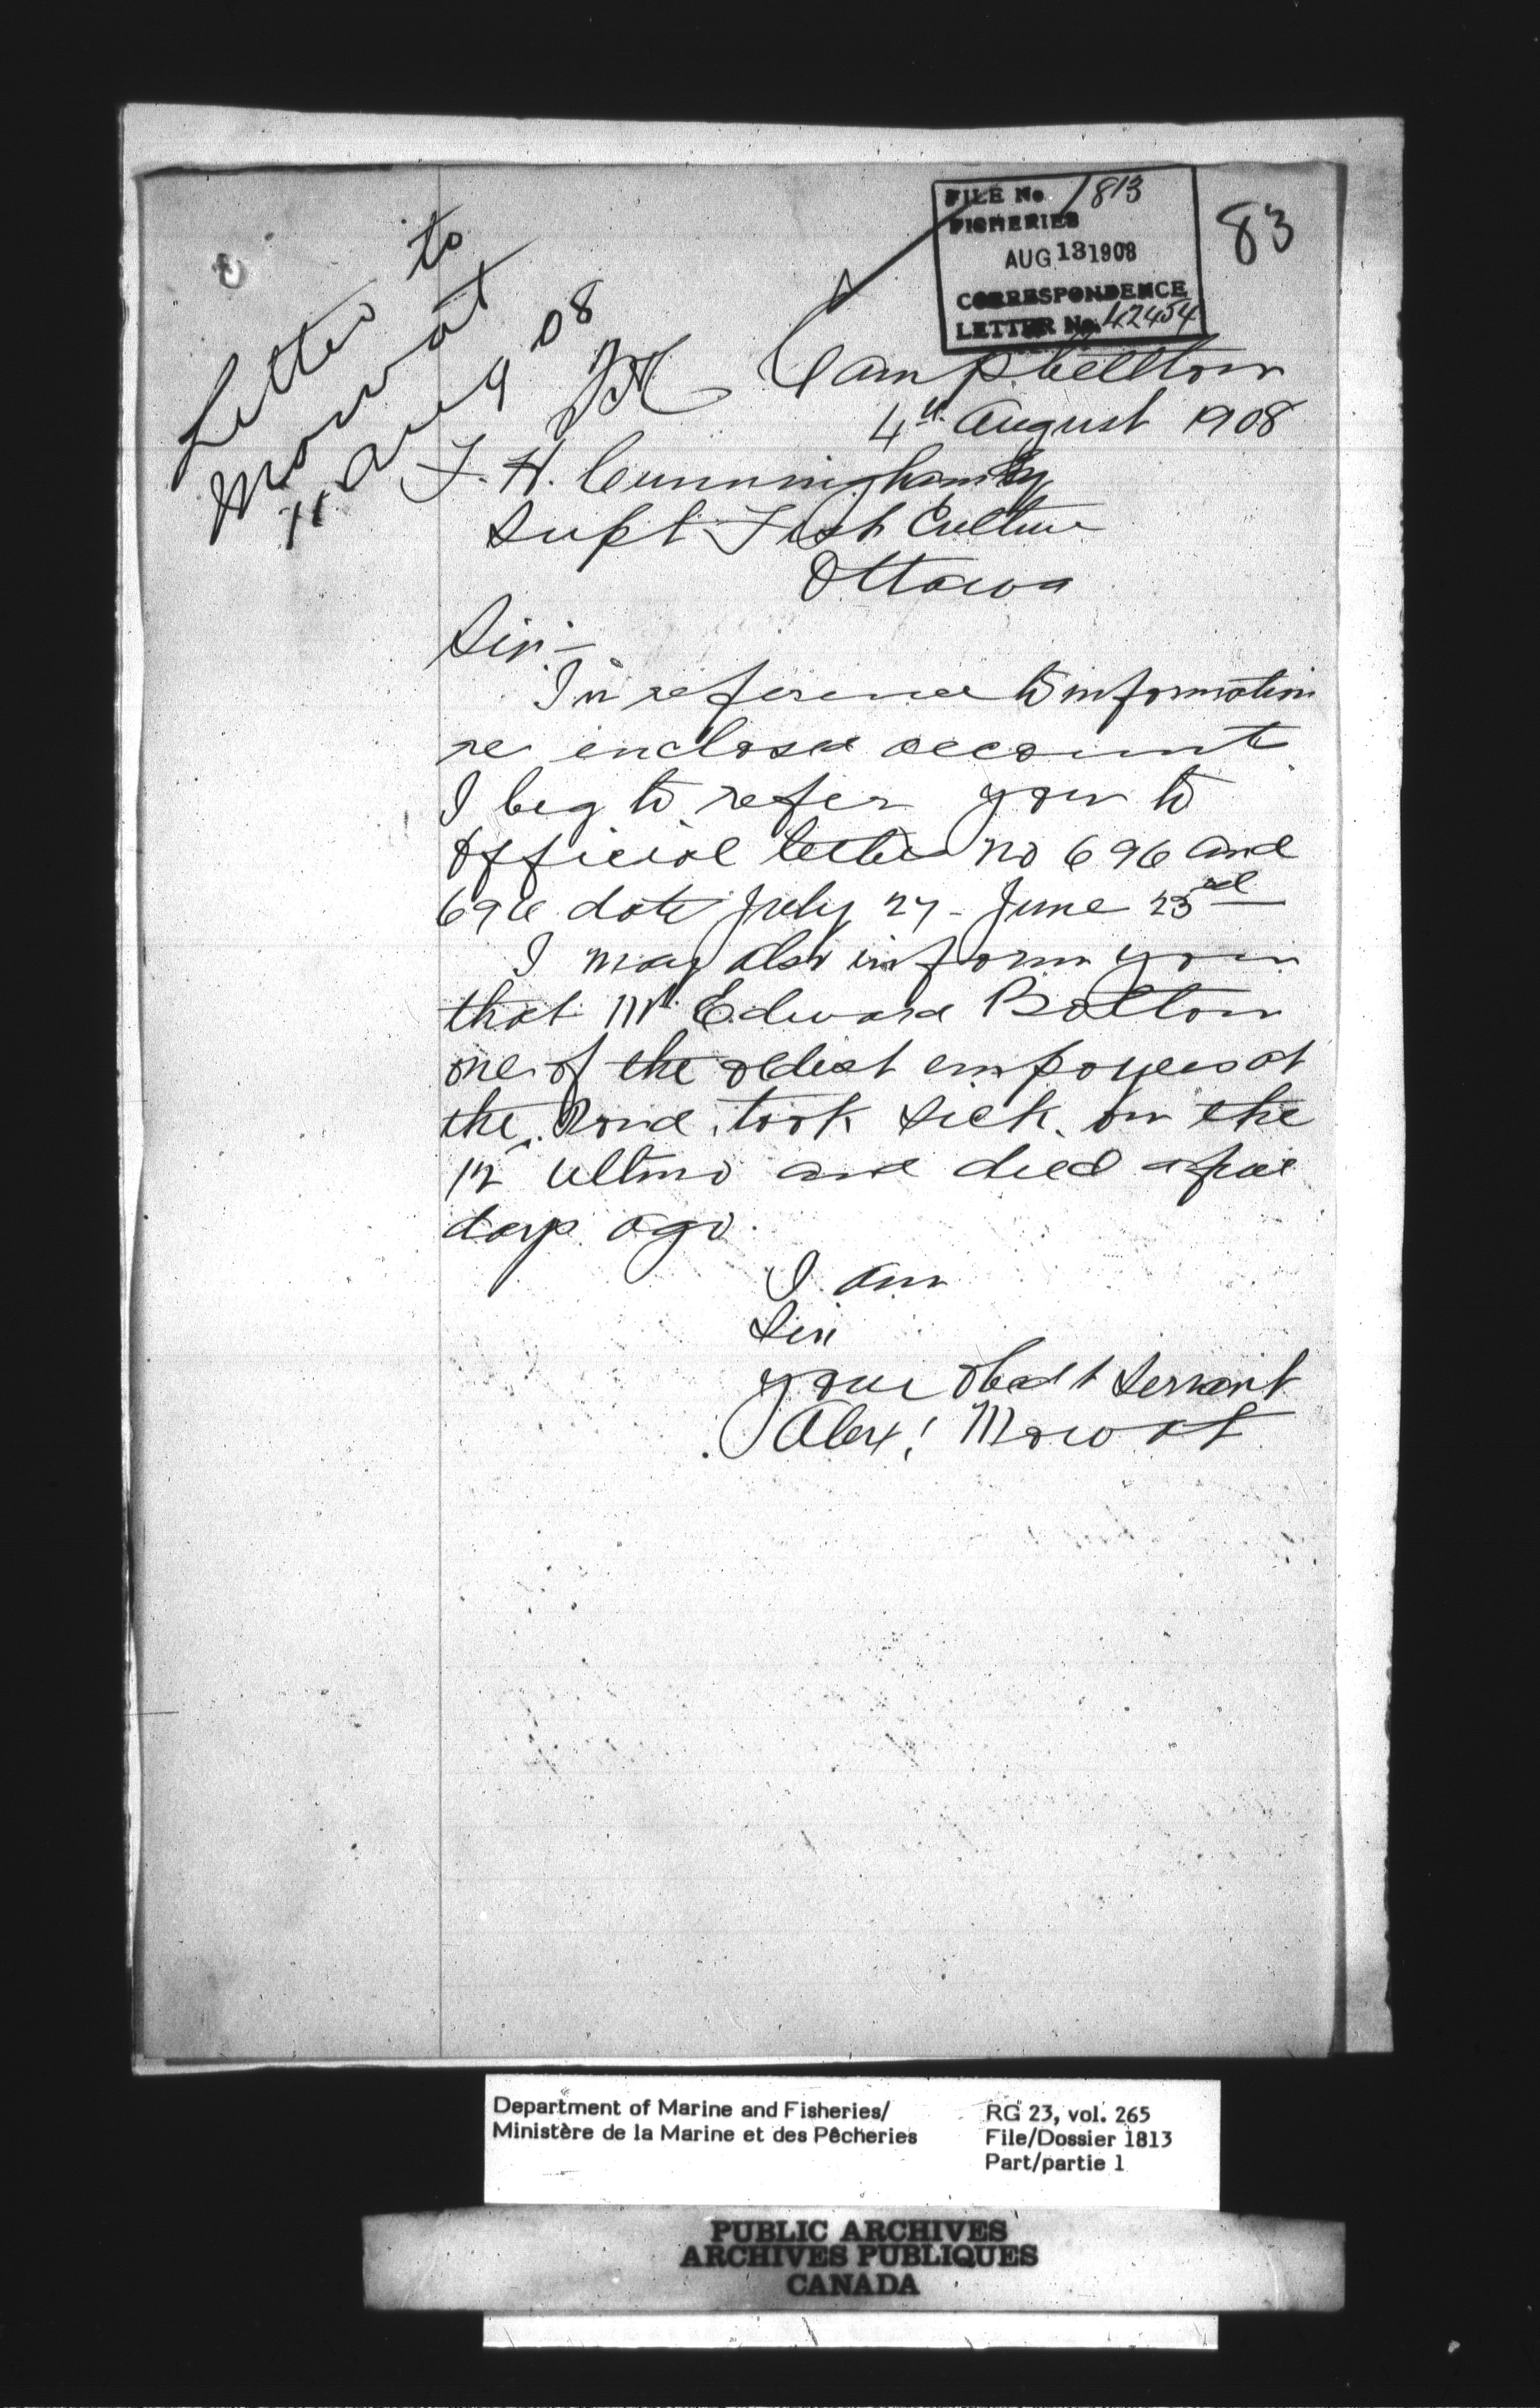 FILE No. 1813
FISHERIES
AUG 13 1908
CORRESPONDENCE
LETTER No. 42454
83
Letter to
Mowat
11 Aug 08
Campbellton
4th August 1908
F. H. Cunningham Esq
Supt Fish Culture
Ottawa
Sir :-
In reference to information
re enclosed account
I beg to refer you to
official letter no 696 and
696 date July 27 - June 23rd
I may also inform you
that Mr Edward Bolton
one of the oldest employees at
the Pond, took sick on the
12" ultimo and died a few
days ago.
I am
Sir
your obedt Servant
Alex! Mowat
Department of Marine and Fisheries/
Ministère de la Marine et des Pêcheries
RG 23, vol. 265
File/Dossier 1813
Part/partie 1
PUBLIC ARCHIVES
ARCHIVES PUBLIQUES
CANADA